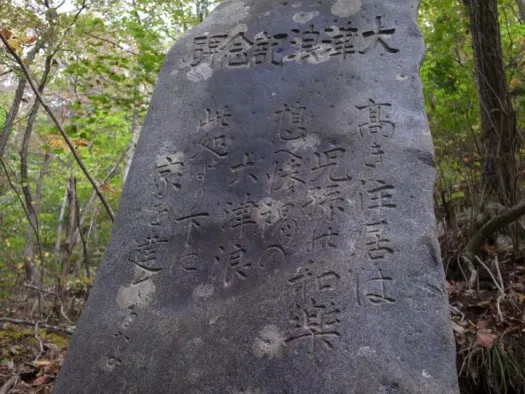 大津浪記念碑
高き住居は
児孫の和楽
想へ惨禍の
大津浪
此処より下に
家を建てるな